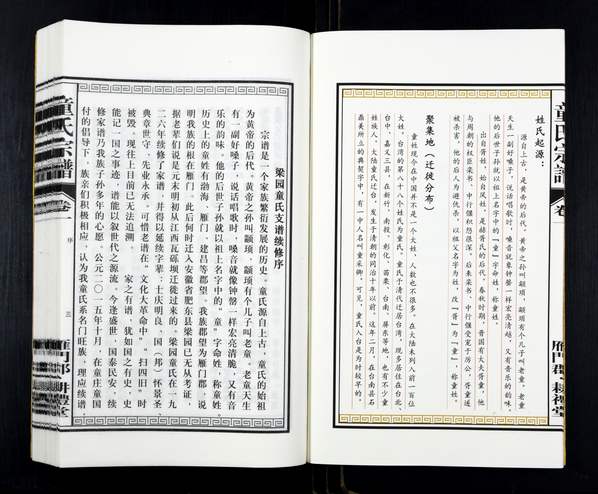 童氏宗譜
卷
雁門郡 耕禮堂
姓氏起源：
源自上古，是黄帝的后代。黄帝之孙叫颛顼，颛顼有个儿子叫老童，老童
天生一副好嗓子，说话唱歌时，嗓音就象钟磬一样宏亮清越，又有音乐的韵味。
他的后世子孙就以祖上名字中的“童”字命姓，称童姓。
出自胥姓，始自风姓，是赫胥氏的后代。春秋时期，晋国有大夫胥童，他
与周朝的权臣栾书、中行偃积怨很深，后来栾书、中行偃受宠于厉公，胥童遂
被杀害。他的后人为避仇杀，以祖父名字为姓，改“胥”为“童”，称童姓。
聚集地（迁徙分布）
童姓现今在中国并不是一个大姓，人数也不很多，在大陆未列入前一百位
大姓。台湾的第八十八个姓氏为童氏。童氏于清代迁居台湾，现多居住在台北、
台中、嘉义三县，在新竹、南投、彰化、苗栗、台南、屏东等地，也有不少童
姓族人。大陆童氏迁台，发生于清朝的同治十年以前，这年二月，在台南县石
鼎美所立的典契字中，有一中人名叫童采卿，可见，童氏人台是为时较早的。
梁园童氏支谱续修序
宗谱是一个家族繁衍发展的历史。童氏源自上古，童氏的始祖
为黄帝的后代，黄帝之孙叫颛顼，颛顼有个儿子叫老童。老童天生
有一副好嗓子，说话唱歌时，嗓音就像钟磬一样宏亮清脆，又有音
乐的韵味。他的后世子孙就以祖上名字中的“童”字命姓，称童姓。
历史上的童姓有渤海、雁门、建昌等郡望。我族郡望为雁门郡，说
明我族的根在雁门。此后何时迁入安徽省肥东县梁园已无从考证，
据老辈们说是元末明初从江西瓦砾坝迁徙过来的。梁园童氏在一九
二六年续修了家谱，并得以延续字辈：士庆明良、国（邦）怀景圣、
典章世守、先业永承。可惜老谱在“文化大革命中”，扫四旧，时
被毁。现往上目前已无法追溯。 家之有谱，犹如国之有史，史
能记一国之事迹，谱能以叙世代之源流。今逢盛世，国泰民安，续
修家谱乃我族子孙多年的心愿。公元二〇一五年十月，在童庄童国
付的倡导下。族亲们积极相应。认为我童氏系名门旺族，理应续谱
童氏宗譜
卷
序
三
雁門郡 耕禮堂